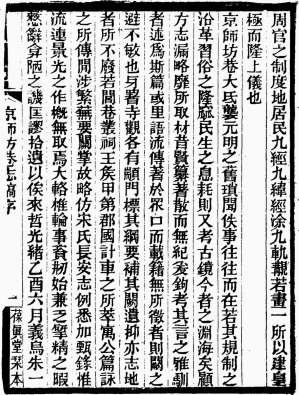 周官之制度地居民九經九緯經涂九軌若畫一所以建皇
極而隆上儀也
京師坊巷大氐襲元明之舊瑣聞佚事往往而在若其規制之
沿革習俗之隆窳民生之息耗則又考古鏡今者之淵海矣顧
方志漏略靡所取材昔賢纂著散而無紀爰鉤考其言之雅馴
者述爲斯篇或里語流傳著於眾口而載籍無所徵者則闕之
避不敏也牙署寺觀各有顓門標其綱要補其闕遺抑亦志地
者所不廢若閭巷叢祠王侯甲第郡國計車之所萃寓公篇詠
之所傳閒涉繁蕪要關掌故略仿宋氏長安志例悉加甄錄惟
流連景光之作概無取焉大輅椎輪事資剏始兼乏揅精之暇
慙辭弇陋之譏匡謬拾遺以俟來哲光緒乙酉六月義烏朱一
京師坊巷志稿序
一
葆真堂栞本